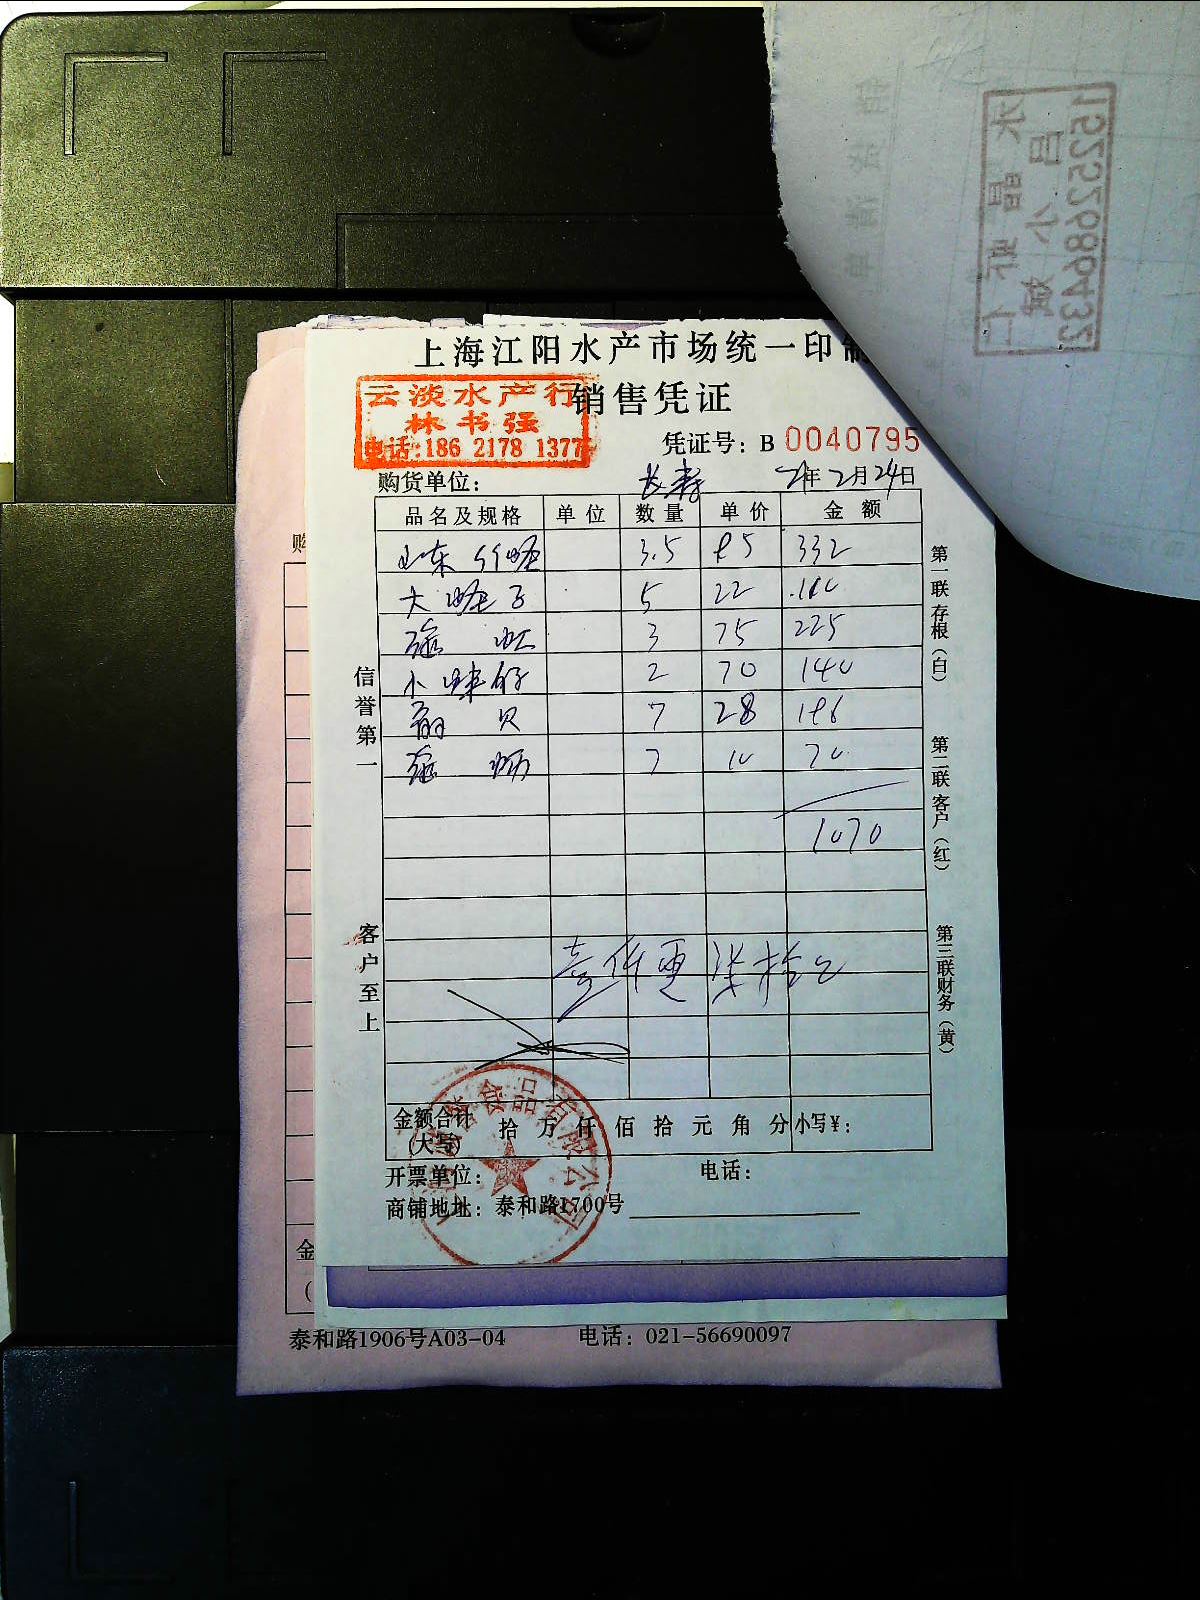 上海江阳水产市场统一印制
销售凭证
云淡水产行
林书强
电话:186 2178 1377
凭证号: B 0040795
购货单位: 长寿 21年 2月 24日
品名及规格 单位 数量 单价 金额
山东竹蛏 3.5 95 332
大蛏子 5 22 110
3 75 225
小 仔 2 70 140
扇贝 7 28 196
7 10 70
1070
壹仟零柒拾元
信誉第一
客户至上
第一联存根(白)
第二联客户(红)
第三联财务(黄)
金额合计(大写) 拾 万 仟 佰 拾 元 角 分 小写¥:
开票单位: 电话:
商铺地址: 泰和路1700号
食品有限公司
购
金
(
泰和路1906号A03-04 电话: 021-56690097
水晶
昌小
15252686432